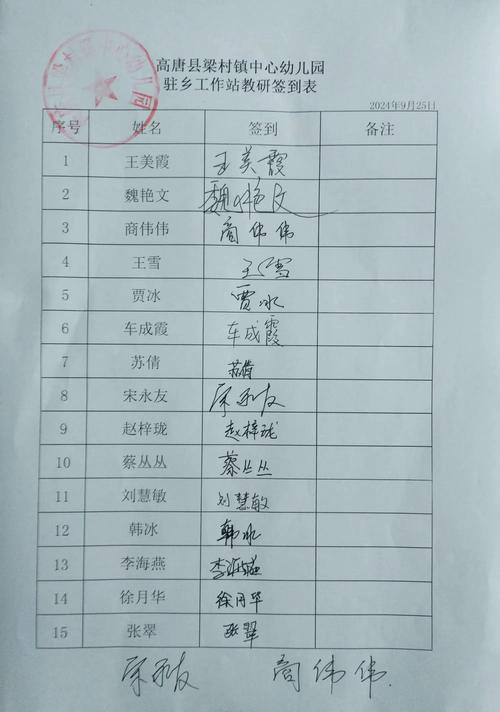 高唐县梁村镇中心幼儿园
驻乡工作站教研签到表
2024年9月25日
序号 姓名 签到 备注
1 王美霞 王美霞
2 魏艳文 魏艳文
3 商伟伟 商伟伟
4 王雪 王雪
5 贾冰 贾冰
6 车成霞 车成霞
7 苏倩 苏倩
8 宋永友 宋永友
9 赵梓珑 赵梓珑
10 蔡丛丛 蔡丛丛
11 刘慧敏 刘慧敏
12 韩冰 韩冰
13 李海燕 李海燕
14 徐月华 徐月华
15 张翠 张翠
宋永友 商伟伟